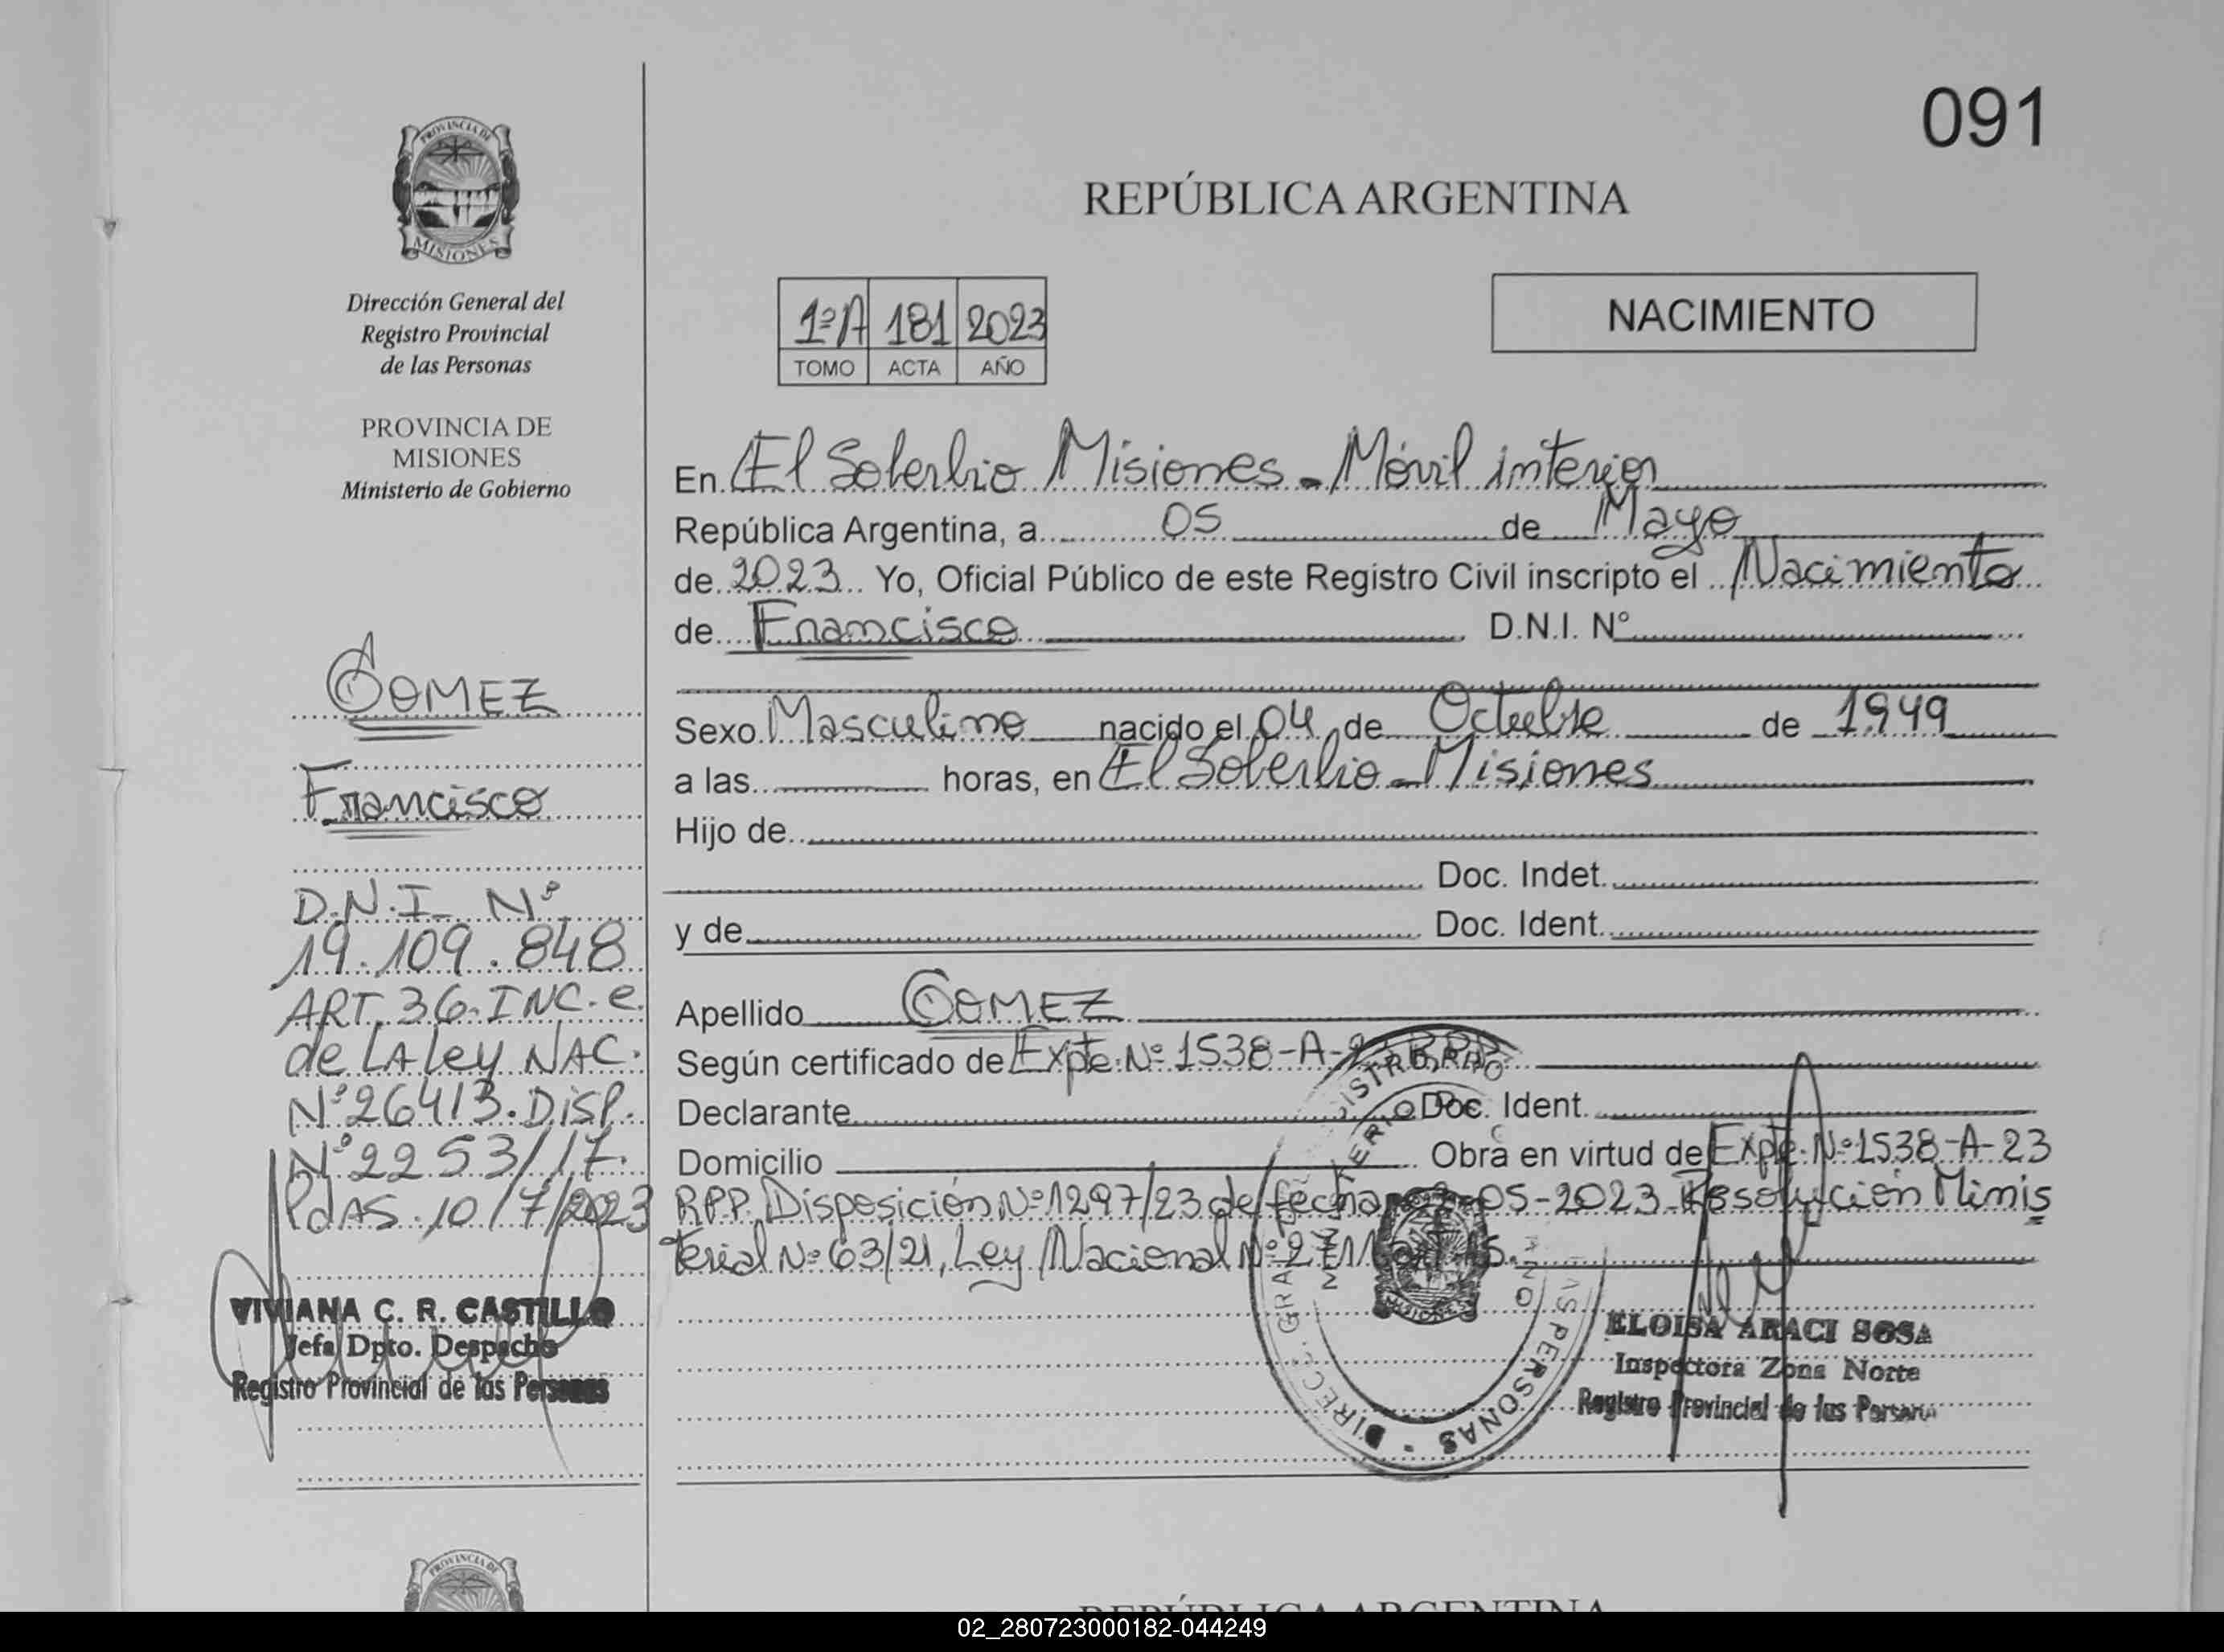 091
PROVINCIA DE
MISIONES
Dirección General del
Registro Provincial
de las Personas
PROVINCIA DE
MISIONES
Ministerio de Gobierno
GOMEZ
Francisco
D.N.I. Nº
19.109.848
ART. 36. INC. e.
de LA Ley NAC.
Nº 26413. DISP.
Nº 2253/17.
PdAS. 10/7/2023
VIVIANA C. R. CASTILLO
Jefa Dpto. Despacho
Registro Provincial de las Personas
REPÚBLICA ARGENTINA
1ºA 181 2023
TOMO ACTA AÑO
NACIMIENTO
En El Soberbio Misiones - Móvil interior
República Argentina, a 05 de Mayo
de 2023 Yo, Oficial Público de este Registro Civil inscripto el Nacimiento
de Francisco D.N.I. Nº
Sexo Masculino nacido el 04 de Octubre de 1949
a las horas, en El Soberbio - Misiones
Hijo de
Doc. Indet.
y de Doc. Ident.
Apellido GOMEZ
Según certificado de Expte. Nº 1538-A-
Declarante Doc. Ident.
Domicilio Obra en virtud de Expte. Nº 1538-A-23
RPP. Disposición Nº 1297/23 de fecha 05-2023. Resolución Minis
terial Nº 63/21, Ley Nacional Nº
ELOISA ARACI SOSA
Inspectora Zona Norte
Registro Provincial de las Personas
DIRECC. GRAL. PERSONAS
MISIONES
PROVINCIA DE
REPÚBLICA ARGENTINA
02_280723000182-044249